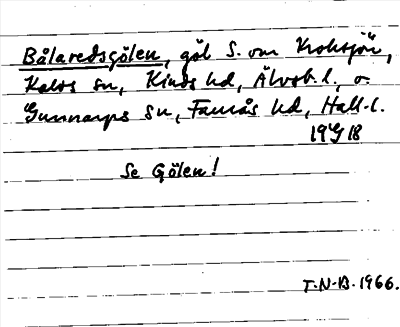 Bålaredsgölen, göl S. om Kroksjön,
Kalvs sn, Kinds hd, Älvsb. l., o.
Gunnarps sn, Faurås hd, Hall. l.
19 18
Se Gölen!
T.N-B. 1966.